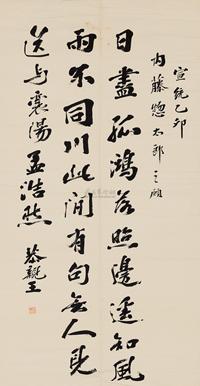 宣統乙卯
内藤惣太郎
目盡孤鴻落照邊遥知風
雨不同川此間有句無人見
送与襄陽孟浩然
恭親王